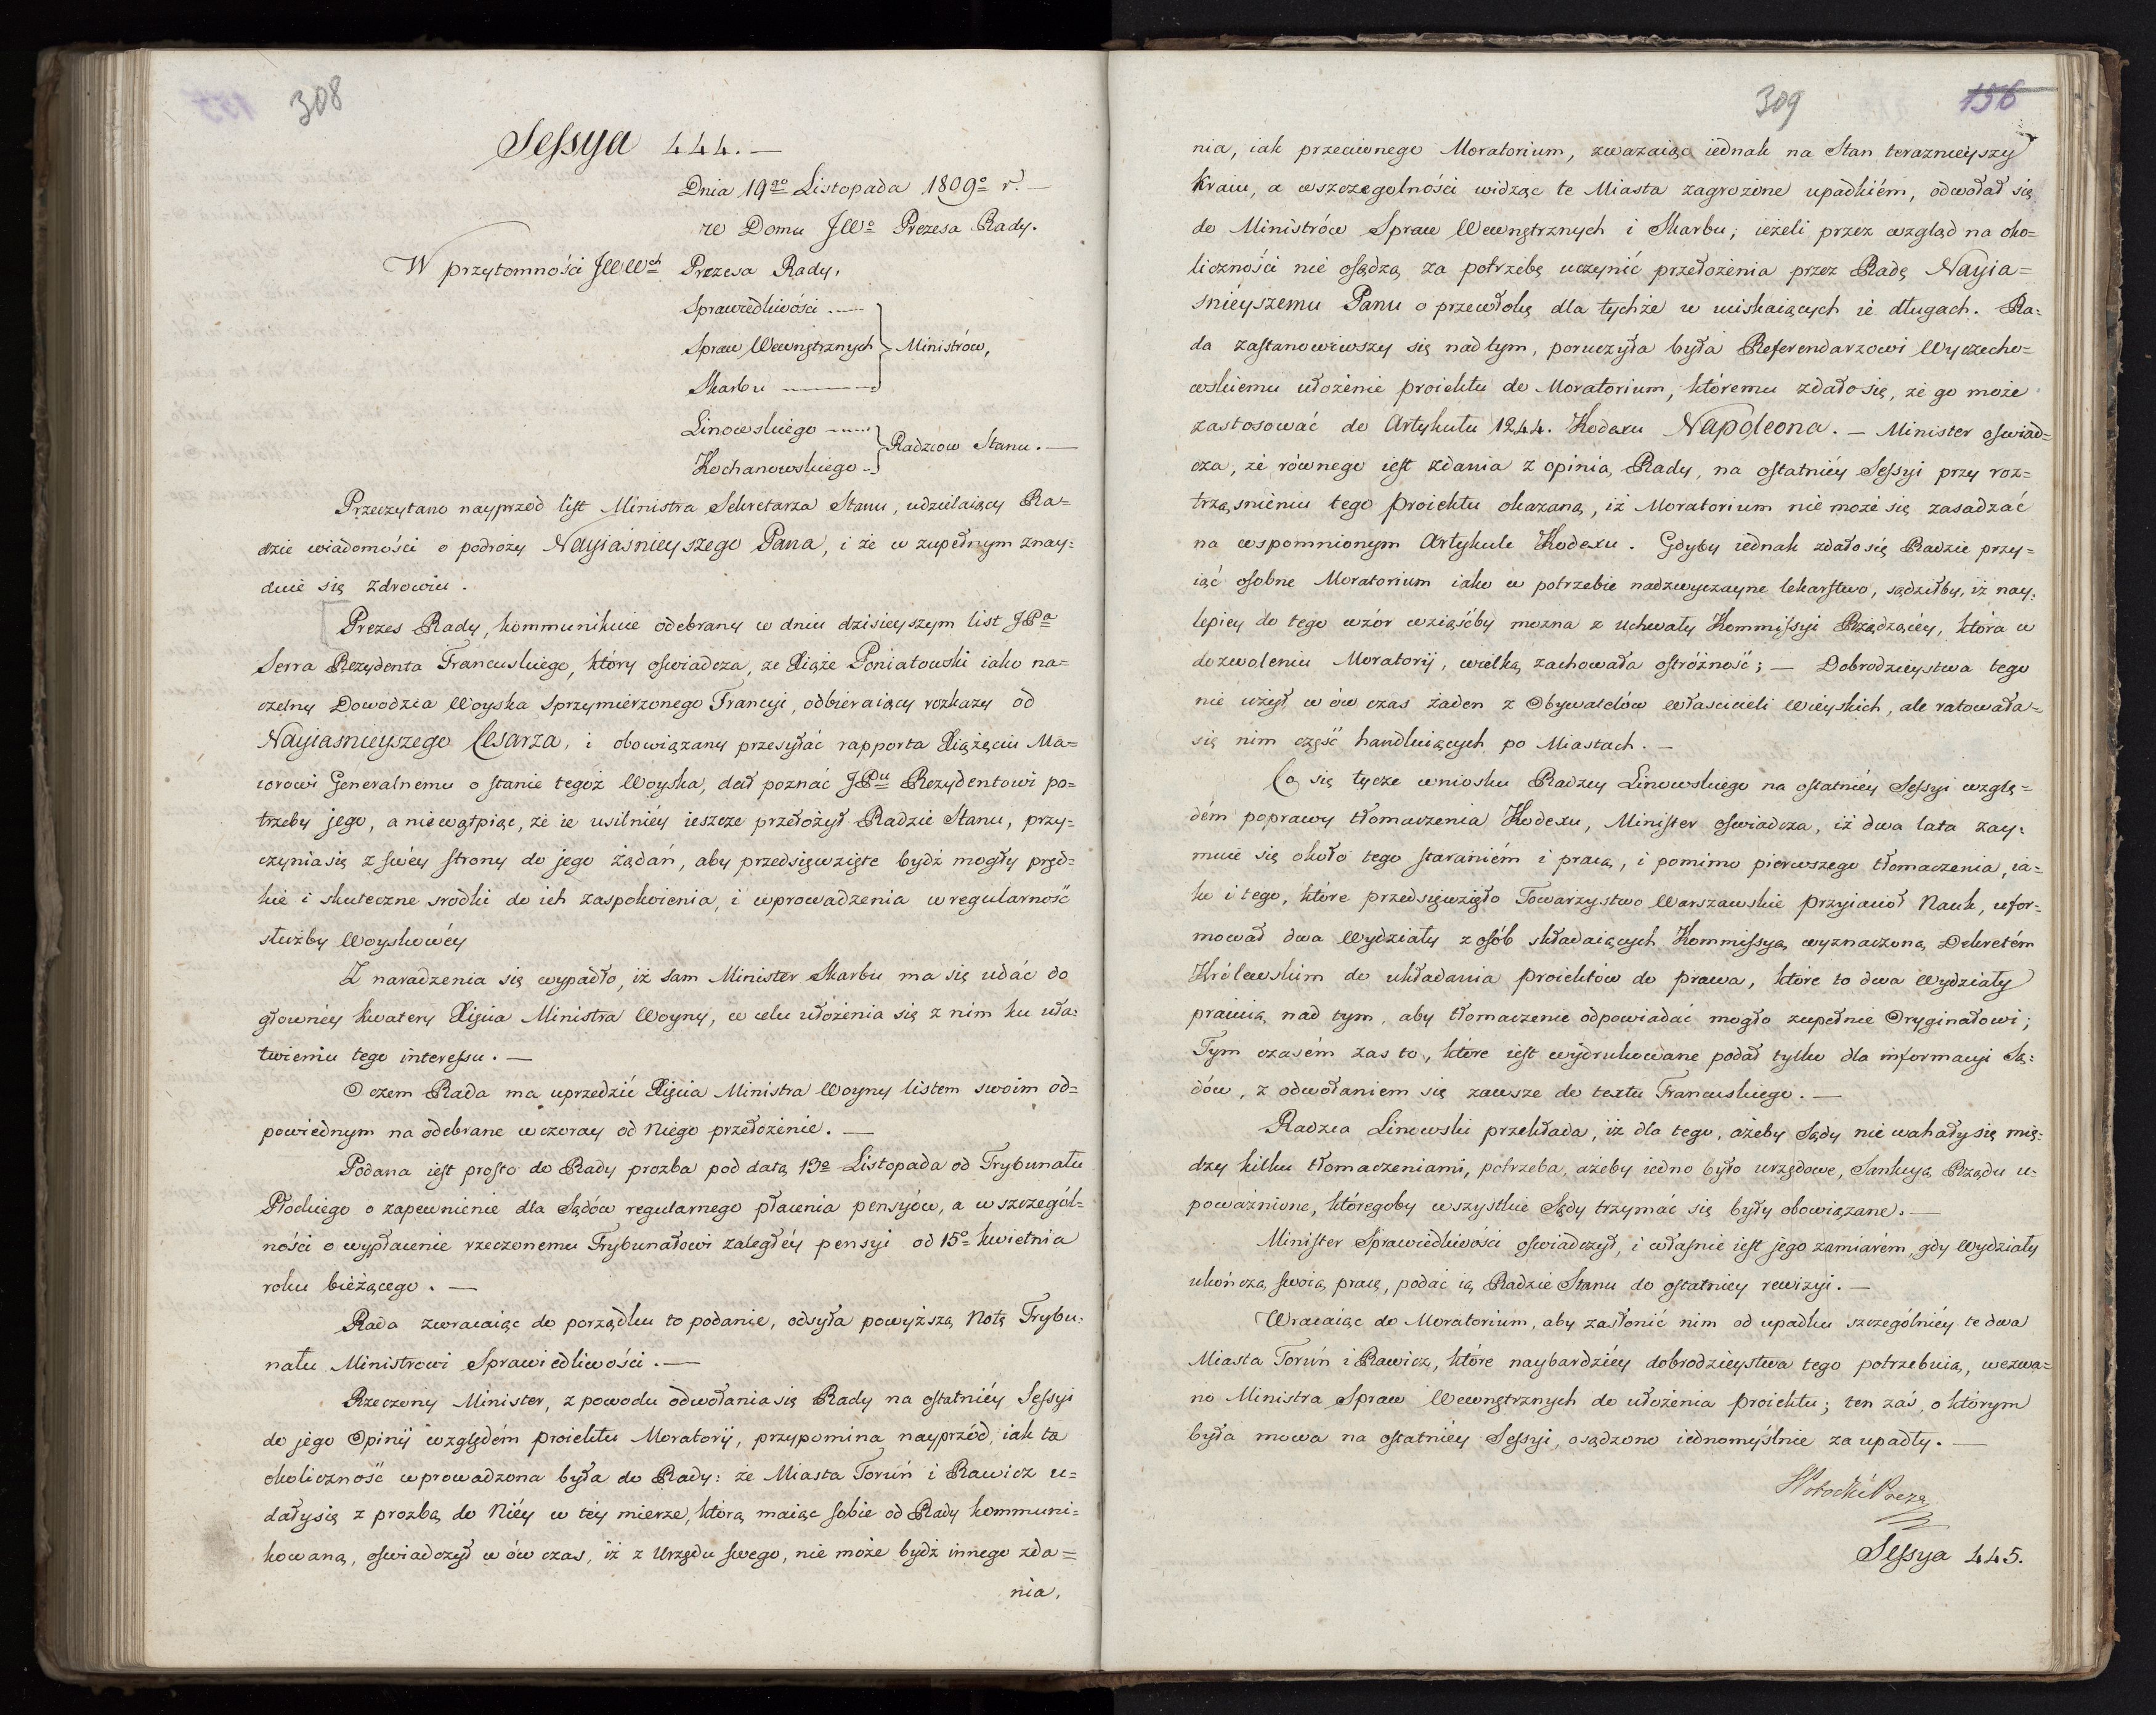 308
Sessya 444. —
Dnia 19go Listopada 1809o r. —
w Domu JWo Prezesa Rady.
W przytomności JWWch Prezesa Rady,
Sprawiedliwości
Spraw Wewnętrznych } Ministrów,
Skarbu
Linowskiego
Kochanowskiego } Radzców Stanu. —
Przeczytano nayprzód list Ministra Sekretarza Stanu, udzielaiący Ra=
dzie wiadomości o podroży Nayiasnieyszego Pana, i że w zupełnym znay=
duie się zdrowiu.
Prezes Rady, kommunikuie odebrany w dniu dzisieyszym list JPa
Serra Rezydenta Francuskiego, który oswiadcza, ze Xiąże Poniatowski iako na=
czelny Dowodzca Woyska sprzymierzonego Francyi, odbieraiący rozkazy od
Nayiasnieyszego Cesarza, i obowiązany przesyłać rapporta Xiążęciu Ma=
iorowi Generalnemu o stanie tegoż Woyska, dał poznać JPu Rezydentowi po=
trzeby jego, a niewątpiąc, że ie usilniéy ieszcze przełożył Radzie Stanu, przy=
czynia się z swéy strony do jego żądań, aby przedsięwzięte bydź mogły pręd=
kie i skuteczne srodki do ich zaspokoienia, i wprowadzenia w regularność
służby Woyskowéy
Z naradzenia się wypadło, iż sam Minister Skarbu ma się udać do
głowney kwatery Xięcia Ministra Woyny, w celu ułożenia się z nim ku uła=
twieniu tego interessu. —
O czem Rada ma uprzedzić Xięcia Ministra Woyny listem swoim od=
powiednym na odebrane wczoray od Niego przełożenie. —
Podana iest prosto do Rady prozba pod datą 13o Listopada od Trybunału
Płockiego o zapewnienie dla Sądów regularnego płacenia pensyów, a w szczegól=
ności o wypłacenie rzeczonemu Trybunałowi zaległéy pensyi od 15o kwietnia
roku bieżącego. —
Rada zwracaiąc do porządku to podanie, odsyła powyższą Notę Trybu=
nału Ministrowi Sprawiedliwości. —
Rzeczony Minister, z powodu odwołania się Rady na ostatniéy Sessyi
do jego Opinij względém proiektu Moratorij, przypomina nayprzód, iak ta
okoliczność wprowadzona była do Rady: że Miasta Toruń i Rawicz u=
dały się z prozbą do Niéy w téy mierze, którą maiąc sobie od Rady kommuni=
kowaną, oswiadczył w ów czas, iż z Urzędu swego, nie może bydź innego zda=
nia,
309
156
nia, iak przeciwnego Moratorium, zwazaiąc iednak na Stan teraznieyszy
Kraiu, a wszczególności widząc te Miasta zagrożone upadkiém, odwołał się
do Ministrów Spraw Wewnętrznych i Skarbu; ieżeli przez wzgląd na oko=
liczności nie osądzą za potrzebę uczynić przełożenia przez Radę Nayia=
snieyszemu Panu o przewłokę dla tychże w uiskaiących ie długach. Ra=
da zastanowiwszy się nad tym, poruczyła była Referendarzowi Wyczecho=
wskiemu ułożenie proiektu do Moratorium, któremu zdało się, że go może
zastosować do Artykułu 1244. Kodexu Napoleona. — Minister oswiad=
cza, że równego iest zdania z opinią Rady, na ostatniéy Sessyi przy roz=
trząsnieniu tego proiektu okazaną, iż Moratorium nie może się zasadzać
na wspomnionym Artykule Kodexu. Gdyby iednak zdało się Radzie przy=
iąć osobne Moratorium iako w potrzebie nadzwyczayne lekarstwo, sądziłby, iż nay=
lepiey do tego wzór wziąśćby mozna z uchwały Kommissyi Rządzącéy, która w
dozwoleniu Moratorij, wielką zachowała ostróżność; — Dobrodzieystwa tego
nie użył w ów czas żaden z Obywatelów właścicieli wieyskich, ale ratowała=
się nim część handluiących po Miastach. —
Co się tycze wniosku Radzcy Linowskiego na ostatniéy Sessyi wzglę=
dém poprawy tłomaczenia Kodexu, Minister oswiadcza, iż dwa lata zay=
muie się około tego staraniém i pracą, i pomimo pierwszego tłomaczenia, ia=
ko i tego, które przedsięwzięło Towarzystwo Warszawskie przyiaciół Nauk, ufor=
mował dwa Wydziały z osób składaiących Kommissyą wyznaczoną Dekretém
Królewskim do układania proiektów do prawa, które to dwa Wydziały
pracuią nad tym, aby tłomaczenie odpowiadać mogło zupełnie Oryginałowi;
Tym czasém zas to, które iest wydrukowane podał tylko dla informacyi Są=
dów, z odwołaniem się zawsze do textu Francuskiego. —
Radzca Linowski przekłada, iż dla tego, ażeby Sądy nie wahały się mię=
dzy kilku tłomaczeniami, potrzeba, ażeby iedno było urzędowe, Sankcyą Rządu u=
poważnione, któregoby wszystkie Sądy trzymać się były obowiązane. —
Minister Sprawiedliwości oswiadczył, i własnie iest jego zamiarém, gdy Wydziały
ukończą swoią pracę, podać ią Radzie Stanu do ostatniey rewizyi. —
Wracaiąc do Moratorium, aby zasłonić nim od upadku szczególniéy te dwa
Miasta Toruń i Rawicz, które naybardziéy dobrodzieystwa tego potrzebuią, wezwa=
no Ministra Spraw Wewnętrznych do ułożenia proiektu; ten zaś, o którym
była mowa na ostatniéy Sessyi, osądzono iednomyślnie za upadły. —
Sessya 445.